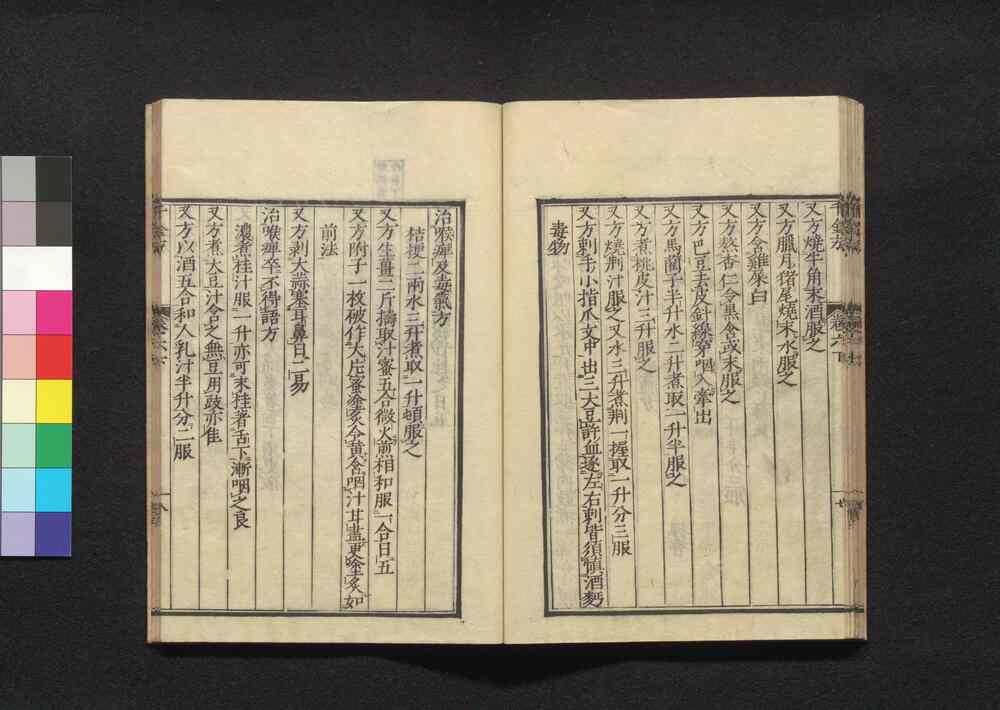 又方燒牛角末酒服之
又方臘月猪尾燒末水服之
又方含雞屎白
又方熬杏仁令黑含或末服之
又方巴豆去皮針線穿咽入牽出
又方馬藺子半升水二升煮取一升半服之
又方煮桃皮汁三升服之
又方燒荆汁服之又水三升煮荆一握取一升分三服
又方刺手小指爪文中出三大豆許血逐左右刺皆須慎酒麪
毒物
治喉痺及毒氣方
桔梗二兩水三升煮取一升頓服之
又方生薑二斤擣取汁蜜五合微火煎相和服一合日五
又方附子一枚破作大片蜜塗炙令黄含咽汁甘盡更塗炙如
前法
又方剥大蒜塞耳鼻日二易
治喉痺卒不得語方
濃煮桂汁服一升亦可末桂著舌下漸咽之良
又方煮大豆汁含之無豆用豉亦佳
又方以酒五合和人乳汁半升分二服